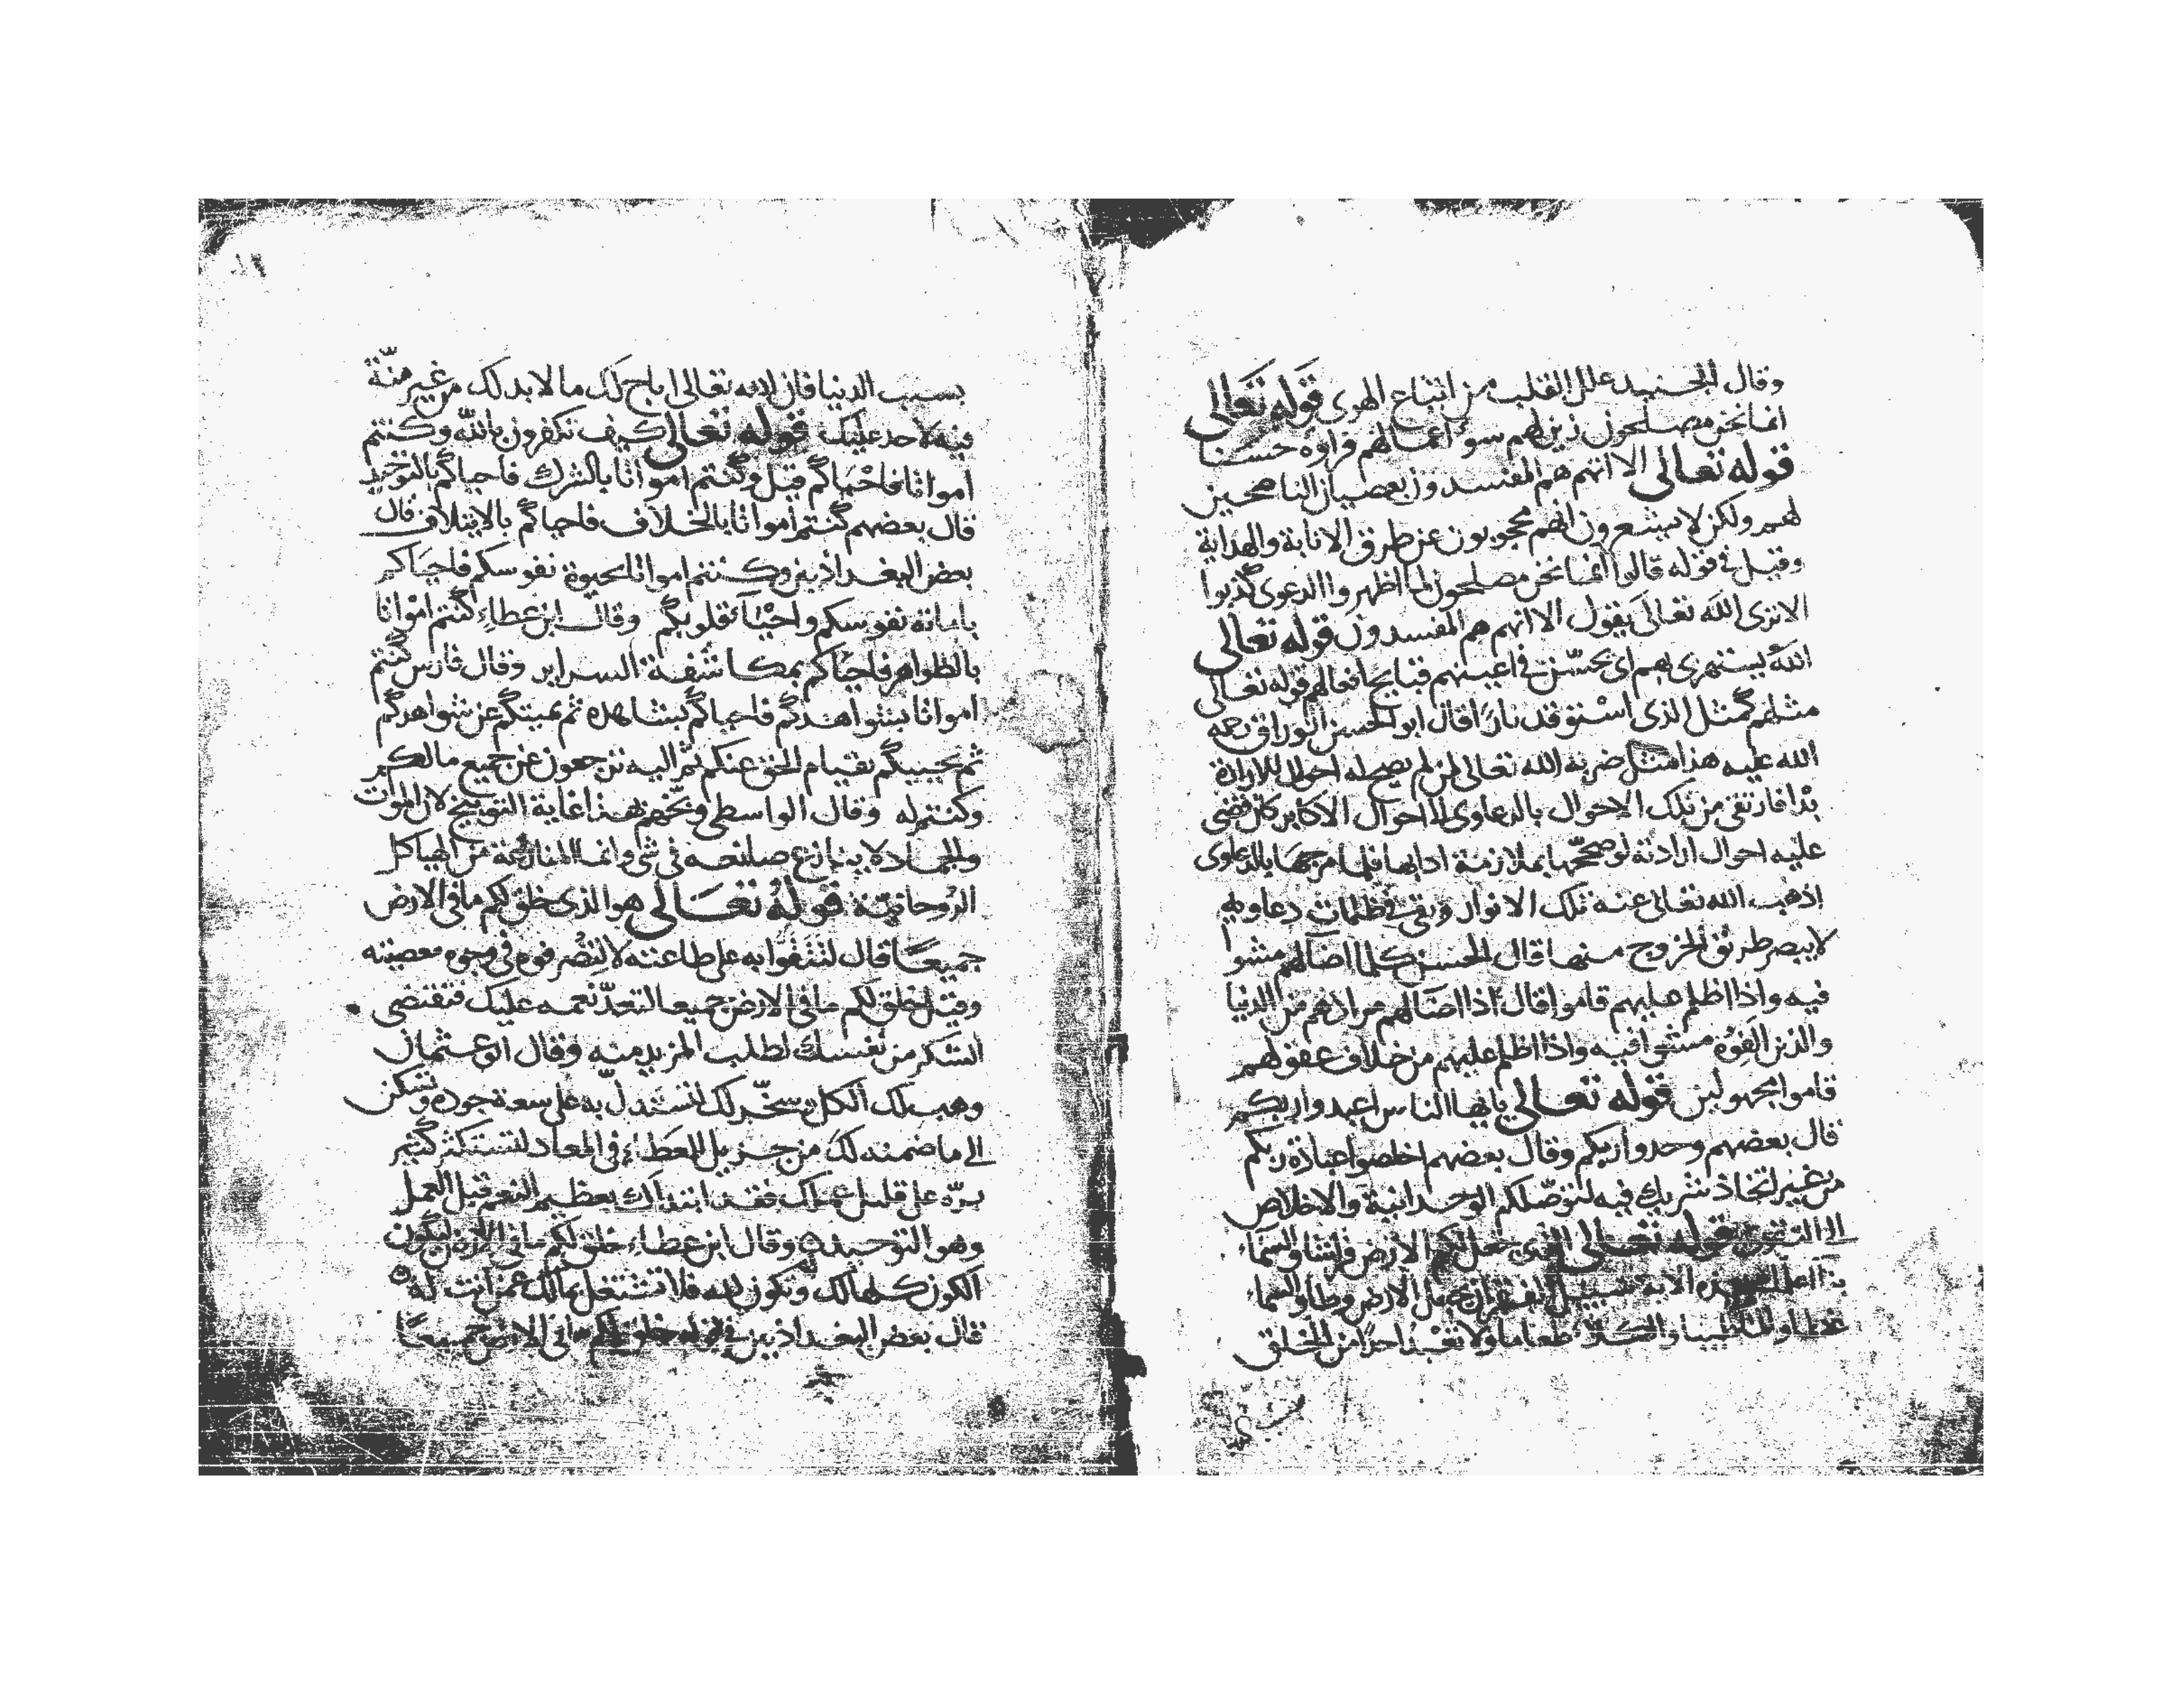 وقال الجنيد علل القلب من اتباع الهوى قوله تعالى
انما نحن مصلحون زين لهم سوء اعمالهم فراوه حسنا
قوله تعالى الا انهم هم المفسدون بعصيان الناصحين
لهم ولكن لا يشعرون انهم محجوبون عن طرق الانابة والهداية
وقيل في قوله قالوا انما نحن مصلحون لما اظهروا الدعوى كذبوا
الا ترى الله تعالى يقول الا انهم هم المفسدون قوله تعالى
الله يستهزى بهم اى يحسّن في اعينهم قبايح افعالهم قوله تعالى
مثلهم كمثل الذى استوقد نارا قال ابو الحسن الوراق رحمه
الله عليه هذا مثل ضربه الله تعالى لمن لم يصح له احوال الارادة
بدا فارتقى من تلك الاحوال بالدعاوى الى احوال الاكابر كان تضى
عليه احوال ارادته لو صححها بملازمة ادابها فلما مزجها بالدعاوى
اذهب الله تعالى عنه تلك الانوار وبقى في ظلمات دعاويه
لا يبصر طريق الخروج منها قال الحسن كلما اضا لهم مشوا
فيه واذا اظلم عليهم قاموا قال اذا اضا لهم مرادهم من الدنيا
والدين الفوه مشوا فيه واذا اظلم عليهم من خلاف عقولهم
قاموا مجهولين قوله تعالى يايها الناس اعبدوا ربكم
قال بعضهم وحدوا ربكم وقال بعضهم اخلصوا عبادة ربكم
من غير اتخاذ شريك فيه لتوصلكم الوحدانية والاخلاص
الى التقوى قوله تعالى الذى جعل لكم الارض فراشا والسماء
بناء الاية سبيل الفقر ان تجعل الارض وطا والسماء
غطا والما طيبا والكلا طعاما ولا تعبد احدا من الخلق
بسبب الدنيا فان الله تعالى اباح لك ما لا بد لك من غير منّة
فيه لاحد عليك قوله تعالى كيف تكفرون بالله وكنتم
امواتا فاحياكم قيل وكنتم امواتا بالشرك فاحياكم بالتوحيد
قال بعضهم كنتم امواتا بالخلاف فاحياكم بالايتلاف قال
بعض البغداديين وكنتم امواتا بحيوة نفوسكم فاحياكم
باماتة نفوسكم واحيا قلوبكم وقال ابن عطاء كنتم امواتا
بالظواهر فاحياكم بمكاشفة السراير وقال فارس كنتم
امواتا بشواهدكم فاحياكم بشاهده ثم يميتكم عن شواهدكم
ثم يحييكم بقيام الحق عنكم ثم اليه ترجعون عن جميع ما لكم
وكنتم له وقال الواسطى وبخهم بهذا غاية التوبيخ لان الموات
والجماد لا ينازع صانعه في شى وانما المنازعة من الهياكل
الروحانية قوله تعالى هو الذى خلق لكم ما في الارض
جميعا قال لتتقوّا به على طاعته لا لتصرفوه في وجوه معصيته
وقيل خلق لكم ما في الارض جميعا لتعدّ نعمه عليك فتقتضى
الشكر من نفسك لطلب المزيد منه وقال ابو عثمان
وهب لك الكل وسخّر لك لتستدل به على سعة جوده وتسكن
الى ما ضمنه لك من جزيل العطاء في المعاد لتستكثر كثير
برّه على قليل عملك فقد ابتداك بعظيم النعم قبل العمل
وهو التوحيد وقال ابن عطاء خلق لكم ما في الارض ليكون
الكون كله لك وتكون لله فلا تشتغل بمالك عمن انت له
قال بعض البغداديين في قوله خلق لكم ما في الارض جميعا